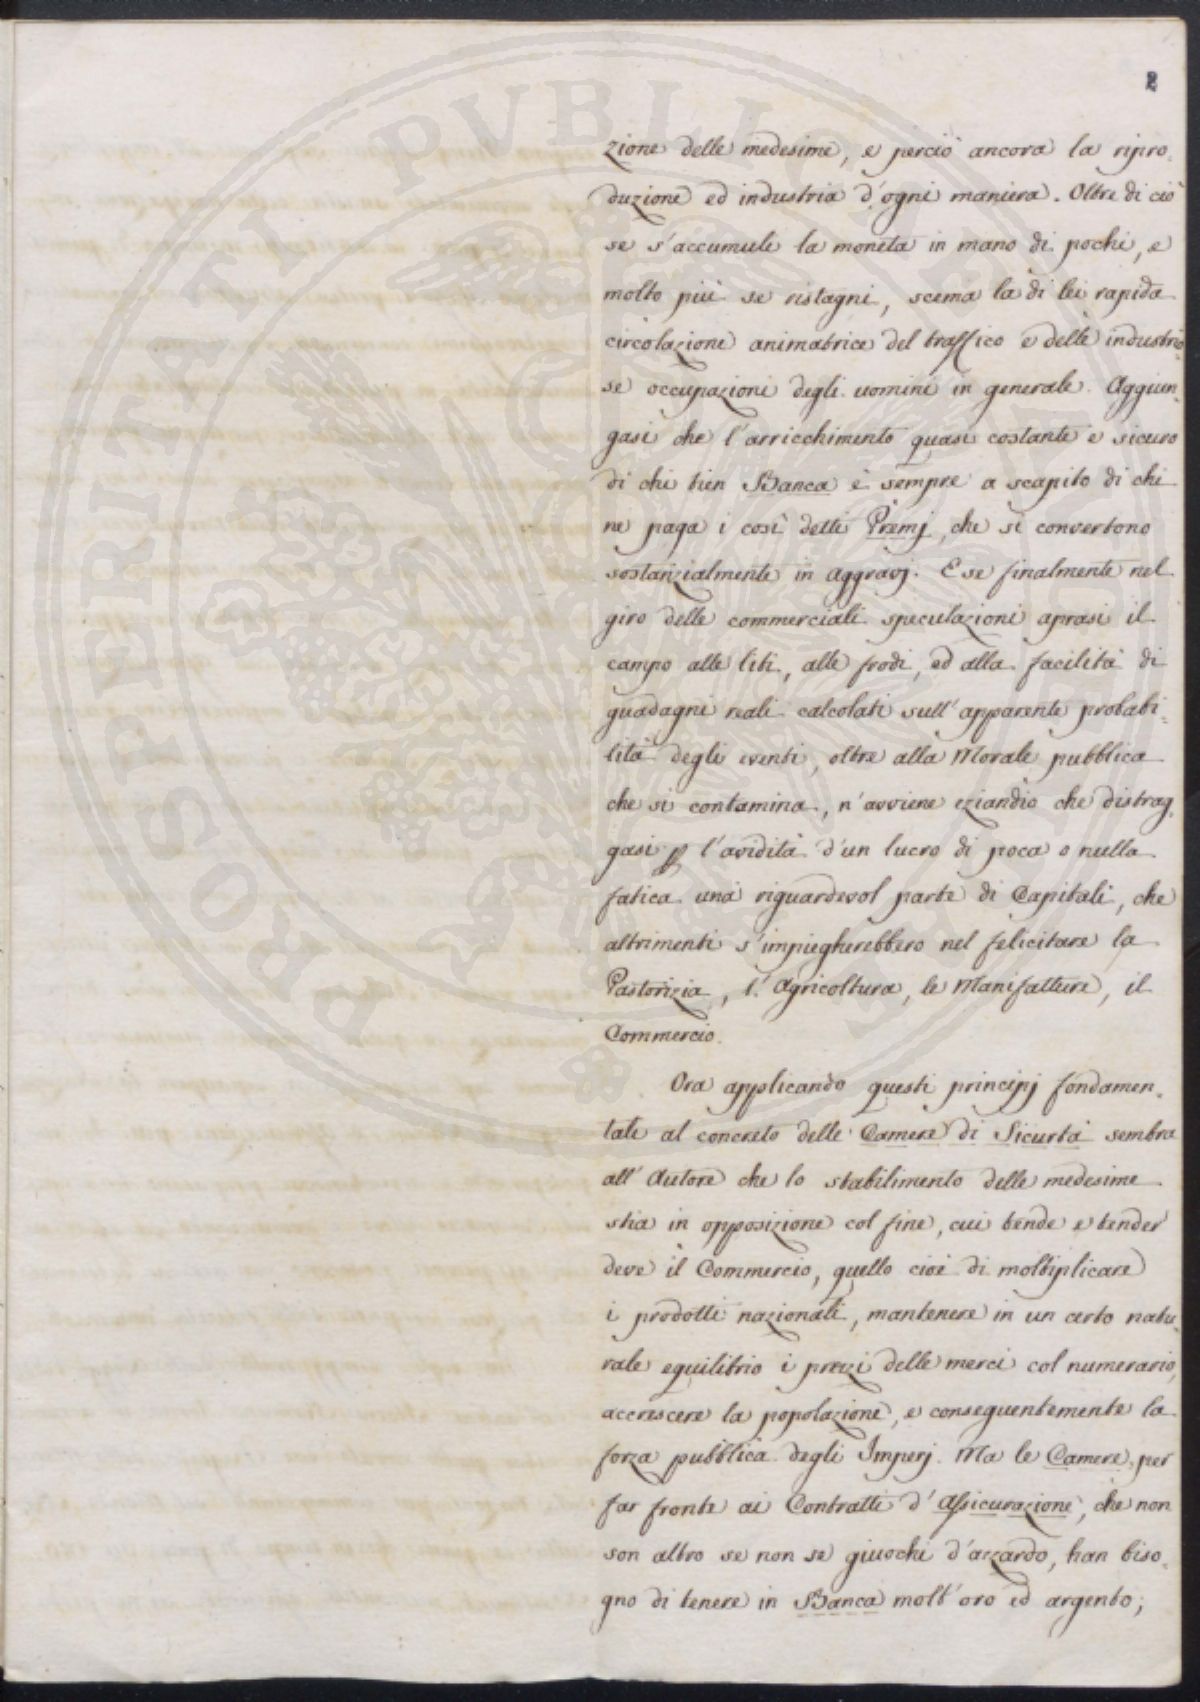 2
zione delle medesime, e perciò ancora la ripro-
duzione ed industria d'ogni maniera. Oltre di ciò
se s'accumuli la moneta in mano di pochi, e
molto più se ristagni, scema la di lei rapida
circolazione animatrice del traffico e delle industrio-
se occupazioni degli uomini in generale. Aggiun-
gasi che l'arricchimento quasi costante e sicuro
di chi tien Banca è sempre a scapito di chi
ne paga i così detti Premj, che si convertono
sostanzialmente in aggravj. E se finalmente nel
giro delle commerciali speculazioni aprasi il
campo alle liti, alle frodi, ed alla facilità di
guadagni reali calcolati sull'apparente probabi-
lità degli eventi, oltre alla Morale pubblica
che si contamina, n'avviene eziandio che distrag-
gasi p l'avidità d'un lucro di poca o nulla
fatica una riguardevol parte di Capitali, che
altrimenti s'impiegherebbero nel felicitare la
Pastorizia, l'Agricoltura, le Manifatture, il
Commercio.
Ora applicando questi principj fondamen-
tali al concreto delle Camere di Sicurtà sembra
all'Autore che lo stabilimento delle medesime
stia in opposizione col fine, cui tende e tender
deve il Commercio, quello cioè di moltiplicare
i prodotti nazionali, mantenere in un certo natu-
rale equilibrio i prezzi delle merci col numerario,
accrescere la popolazione, e conseguentemente la
forza pubblica degli Imperj. Ma le Camere per
far fronte ai Contratti d'Assicurazione, che non
son altro se non se giuochi d'azzardo, han biso-
gno di tenere in Banca molt'oro ed argento;
PROSPERITATI PVBLICAE